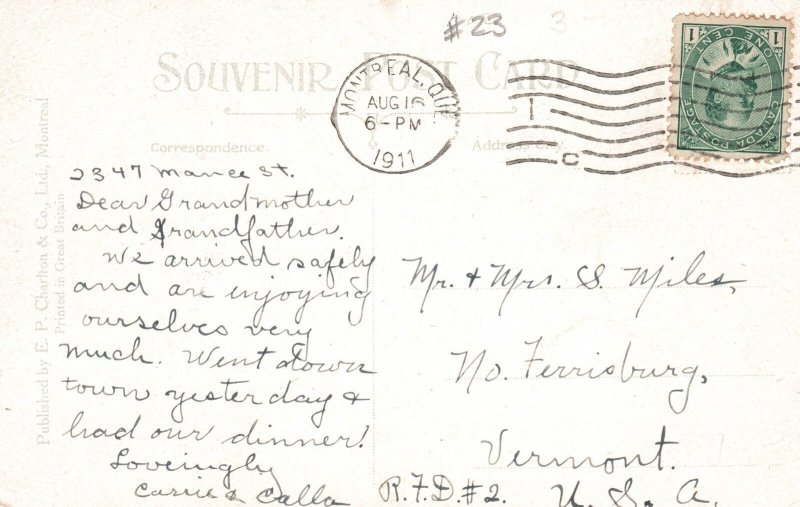 #23
3-
SOUVENIR POST CARD
MONTREAL, QUE.
AUG 16
6-PM
1911
I
C
1 ONE CENT 1
CANADA POSTAGE
Correspondence.
Address Only.
Published by E. P. Charlton & Co., Ltd., Montreal
Printed in Great Britain
2347 Mance St.
Dear Grandmother
and Grandfather.
We arrived safely
and are enjoying
ourselves very
much. Went down
town yesterday &
had our dinner!
Loveingly
Carrie & Calla
Mr. & Mrs. S. Miles,
No. Ferrisburg,
Vermont.
R.F.D. #2. U. S. A.